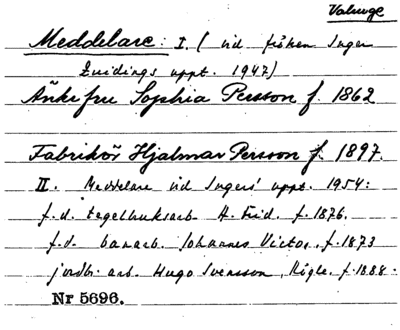 Valinge
Meddelare: I. (vid fröken Inger
Zweidings uppt. 1947)
Änkefru Sophia Persson f. 1862
Fabrikör Hjalmar Persson f. 1897.
II. Meddelare vid Ingers' uppt. 1954:
f.d. tegelbruksarb H. Frid. f. 1876.
f.d. banarb. Johannes Victor, f. 1873
jordbr. arb. Hugo Svensson, f. 1888.
Nr 5696.